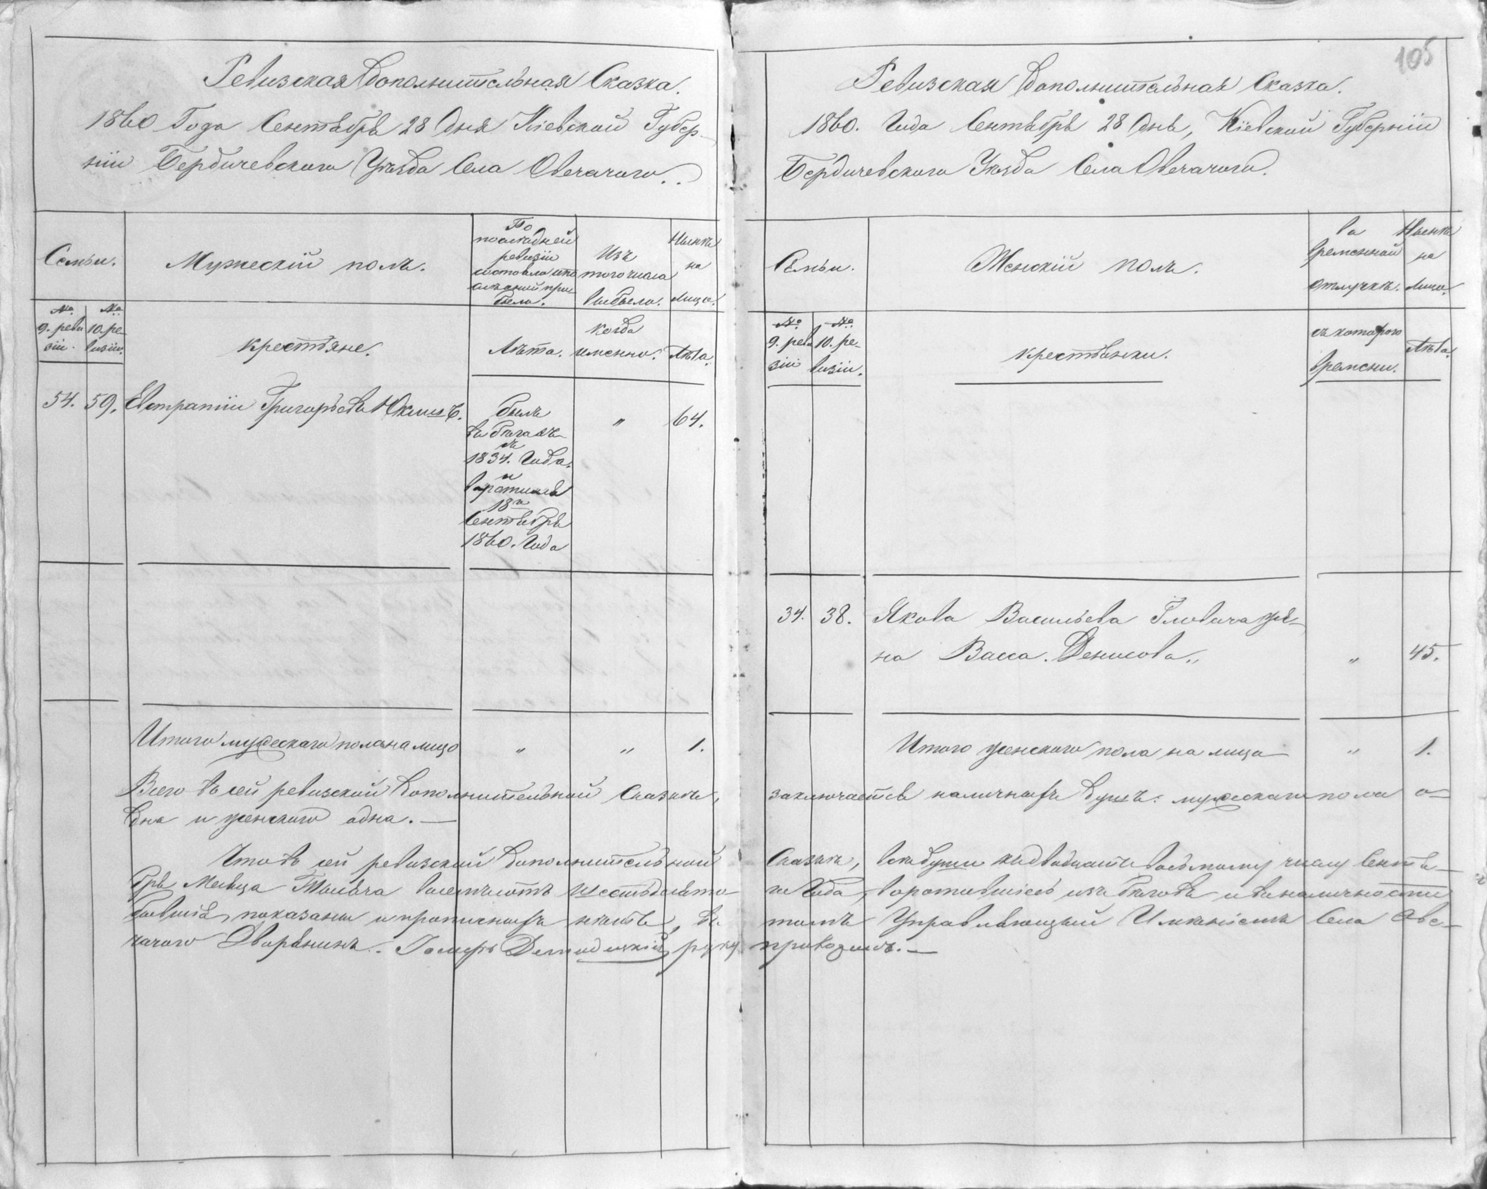 Ревизская Дополнительная Сказка.
1860 Года Сентября 28 Дня Кіевской Губер-
ніи Бердичевского Уезда Села Овечачого.
Семьи.
Мужескій полъ.
По последней ревизіи состояло или после оной прибыло.
Изъ того числа выбыло.
Ныне на лицо.
№ 9. реви зіи
№ 10. ре визіи.
крестьяне.
Лета.
когда именно.
Лета.
54. 59. Евстратіи Григорьевъ
былъ
въ бегахъ
съ
1834. Года
и
воротился
18го
Сентября
1860. Года
„ 64.
Итого мужескаго пола на лицо „ „ 1.
105
Ревизская Дополнительная Сказка.
1860. Года Сентября 28 Дня, Кіевской Губерніи
Бердичевского Уезда Села Овечачого.
Семьи.
Женскій полъ.
Во временной отлучке.
Ныне на лицо.
№ 9. реви зіи
№ 10. ре визіи.
крестьянки.
съ которого времени.
Лета.
34. 38. Якова Васильева же-
на Васса Денисова „ „ 45.
Итого женского пола на лицо „ 1.
Всего въ сей ревизской дополнительной Сказке, заключается наличныхъ душъ: мужескаго пола о-
дна и женского одна.—
Что въ сей ревизской дополнительной Сказке, все души къ двадцать восьмому числу Сентя-
бря Месяца Тысяча восемьсотъ шестьдесято го Года, воротившіесь изъ беговъ и въ наличности
бывшіе, показаны и прописныхъ нетъ, въ томъ Управляющый Именіемъ Села Ове-
чачого Дворянинъ руку приложилъ.—